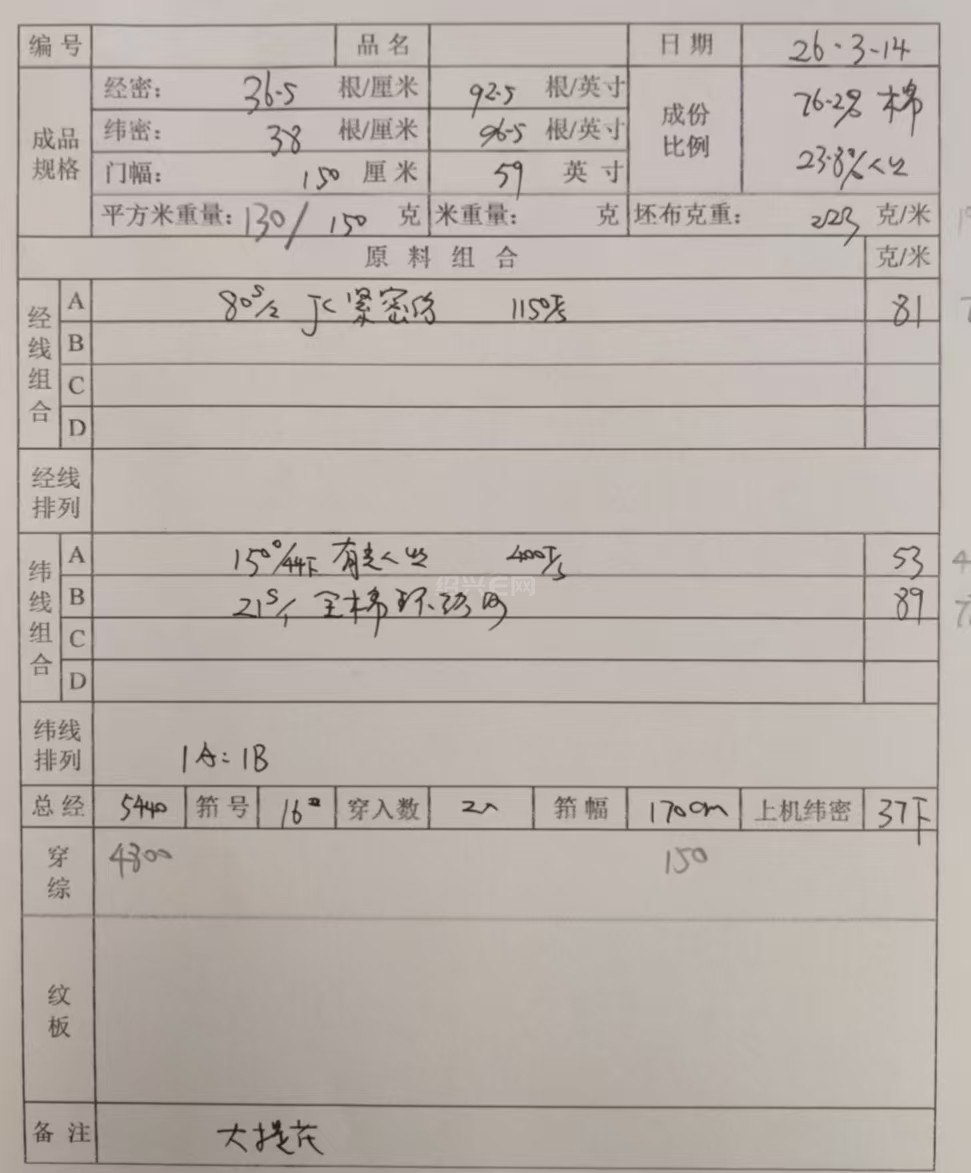 编号 品名 日期 26.3-14
成品规格 经密: 36.5 根/厘米 92.5 根/英寸 成份比例 76.2% 棉
纬密: 38 根/厘米 96.5 根/英寸 23.8% 人丝
门幅: 150 厘米 59 英寸
平方米重量: 130/150 克 米重量: 克 坯布克重: 223 克/米
原料组合 克/米
经线组合 A 80S/2 JC紧密纺 1150T/S 81
B
C
D
经线排列
纬线组合 A 150D/44F 有光人丝 400T/S 53
B 21S/1 全棉环纺 89
C
D
纬线排列 1A:1B
总经 5440 筘号 16# 穿入数 2入 筘幅 170cm 上机纬密 37下
穿综 4800 150
纹板
备注 大提花
绍兴E网